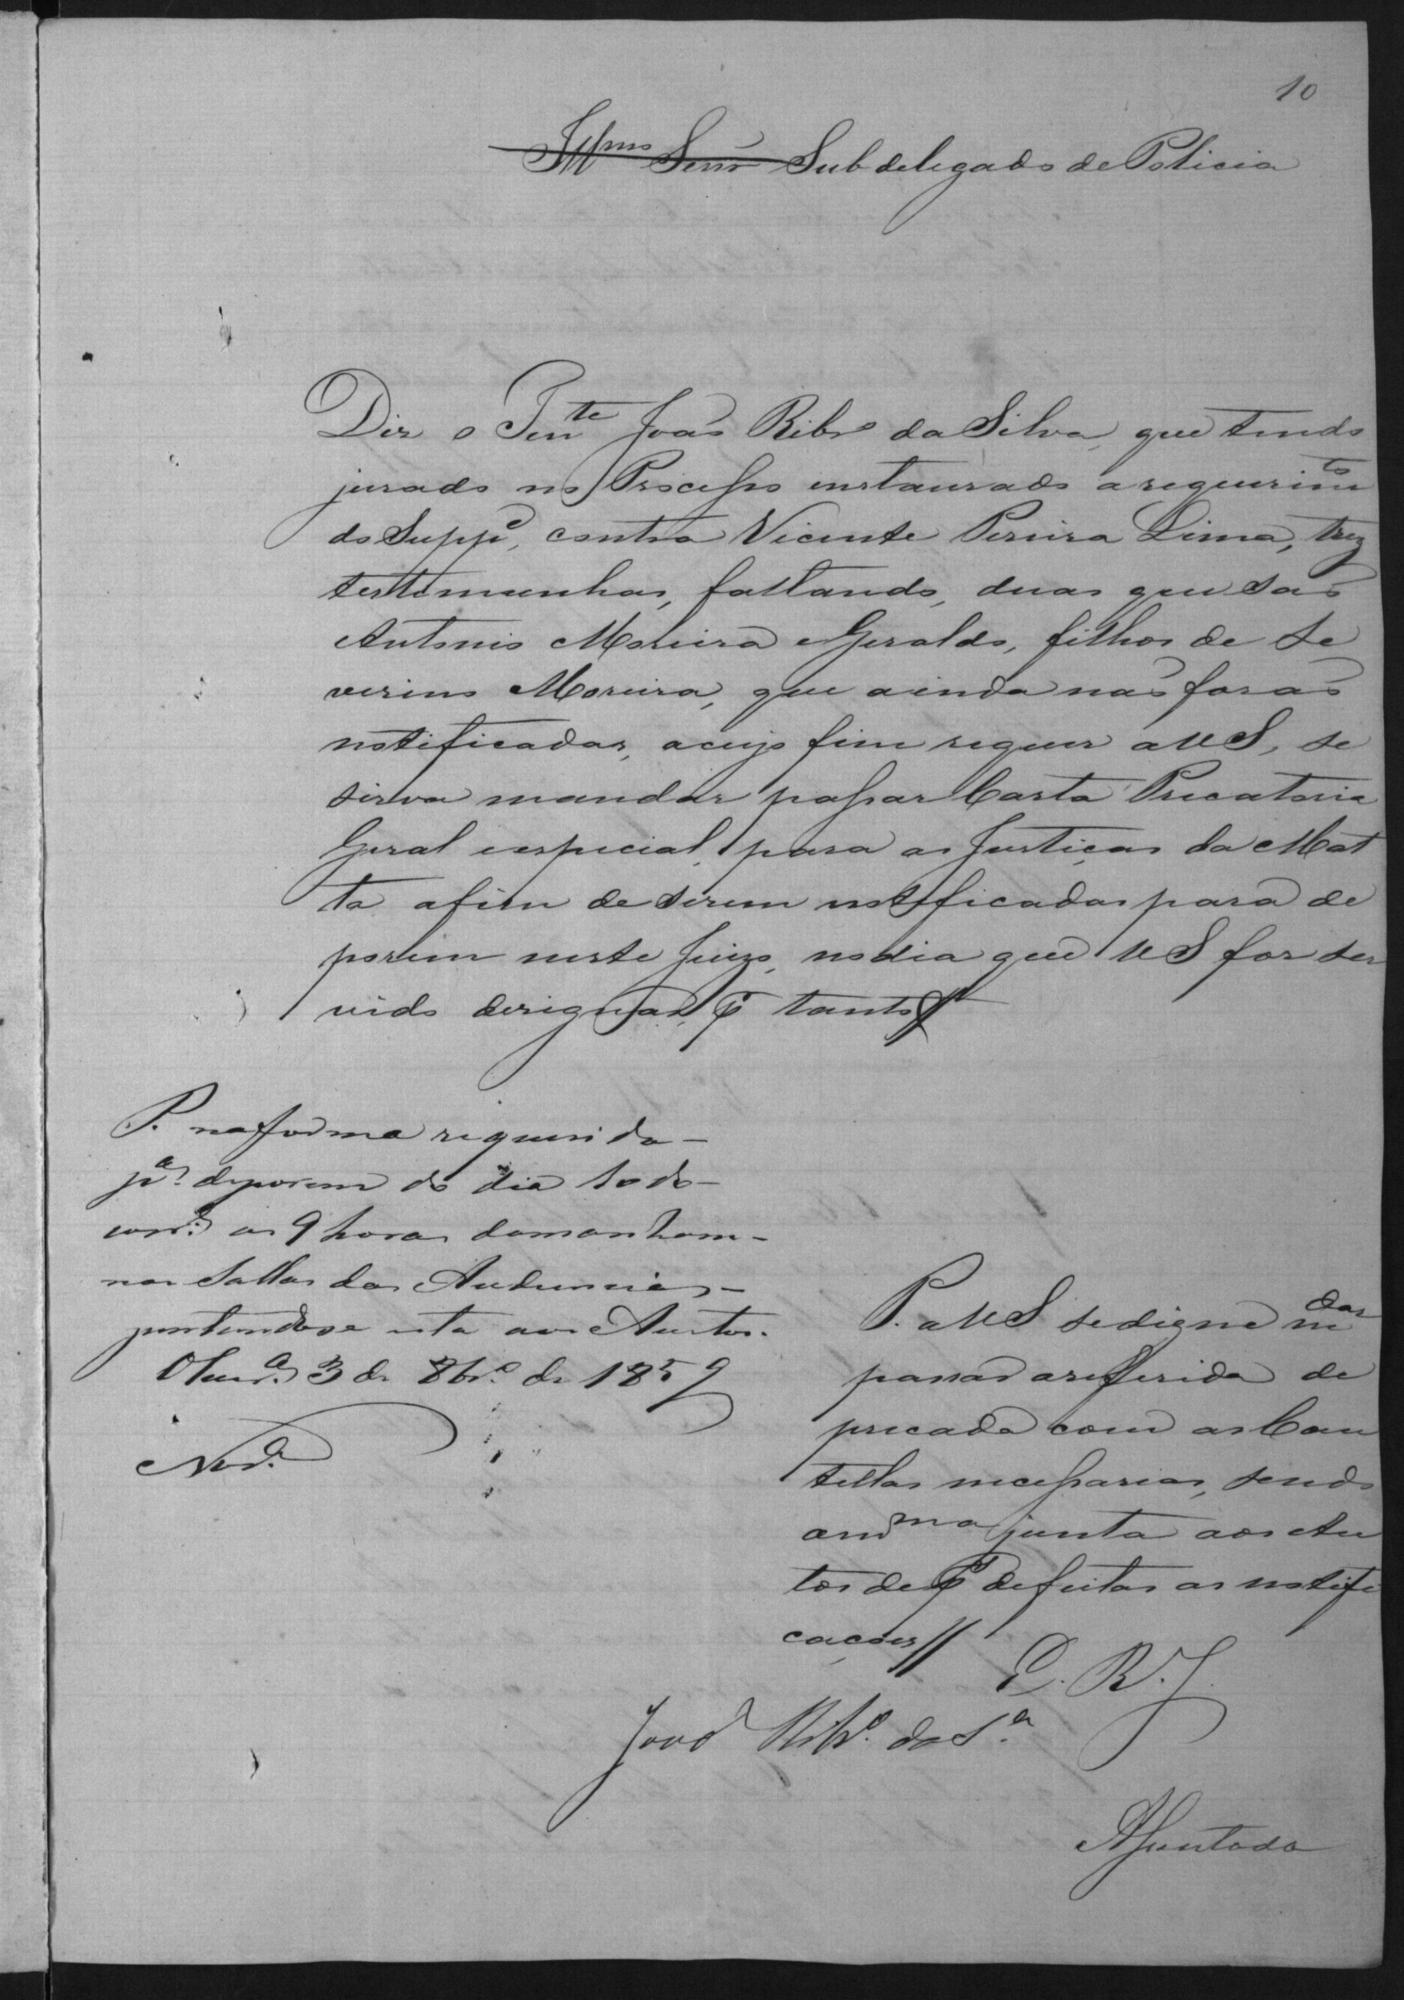 10
Illmo Senr Subdelegado de Policia
Diz o Tente João Ribro da Silva, que tendo
jurado no Processo instaurado a requerimto
do Suppe, contra Vicente Pereira Lima, trez
testemunhas, faltando, duas que são
Antonio Moreira e Geraldo, filhos de Se
verino Moreira, que ainda não forão
notificadas, a cujo fim requer a VS, se
sirva mandar passar Carta Precatoria
Geral e especial, para as Justiças da Mat
ta afim de serem notificadas para de
porem neste Juizo, no dia que VS for ser
vido designar, P tanto
P. na forma requerida
pa. deporem do dia 10 do
corre. as 9 horas da manham
nas Sallas das Audiencias
juntandose esta aos Autos.
3 de 8bro. de 1859
P. a VS se digne mdar
passar a referida de
precada com as Cau
tellas necessarias, sendo
a mma junta aos Au
tos de P de feitas as notifi
cações //
E. R. J.
João Ribro. da Sa.
A Juntada